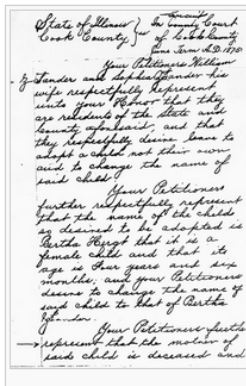 State of Illinois } ss In County Court
Cook County of Cook County
June Term A.D. 1878
Your Petitioners William
Zander and Sophia Zander his
wife respectfully represent
unto your Honor that they
are residents of the State and
County aforesaid, and that
they respectfully desire leave to
adopt a child not their own
and to change the name of
said child
Your Petitioners
further respectfully represent
that the name of the child
so desired to be adopted is
Bertha Hergt that it is a
female child and that its
age is Four years and six
months; and your Petitioners
desire to change the name of
said child to that of Bertha
Zander.
Your Petitioners further
represent that the mother of
said child is deceased and